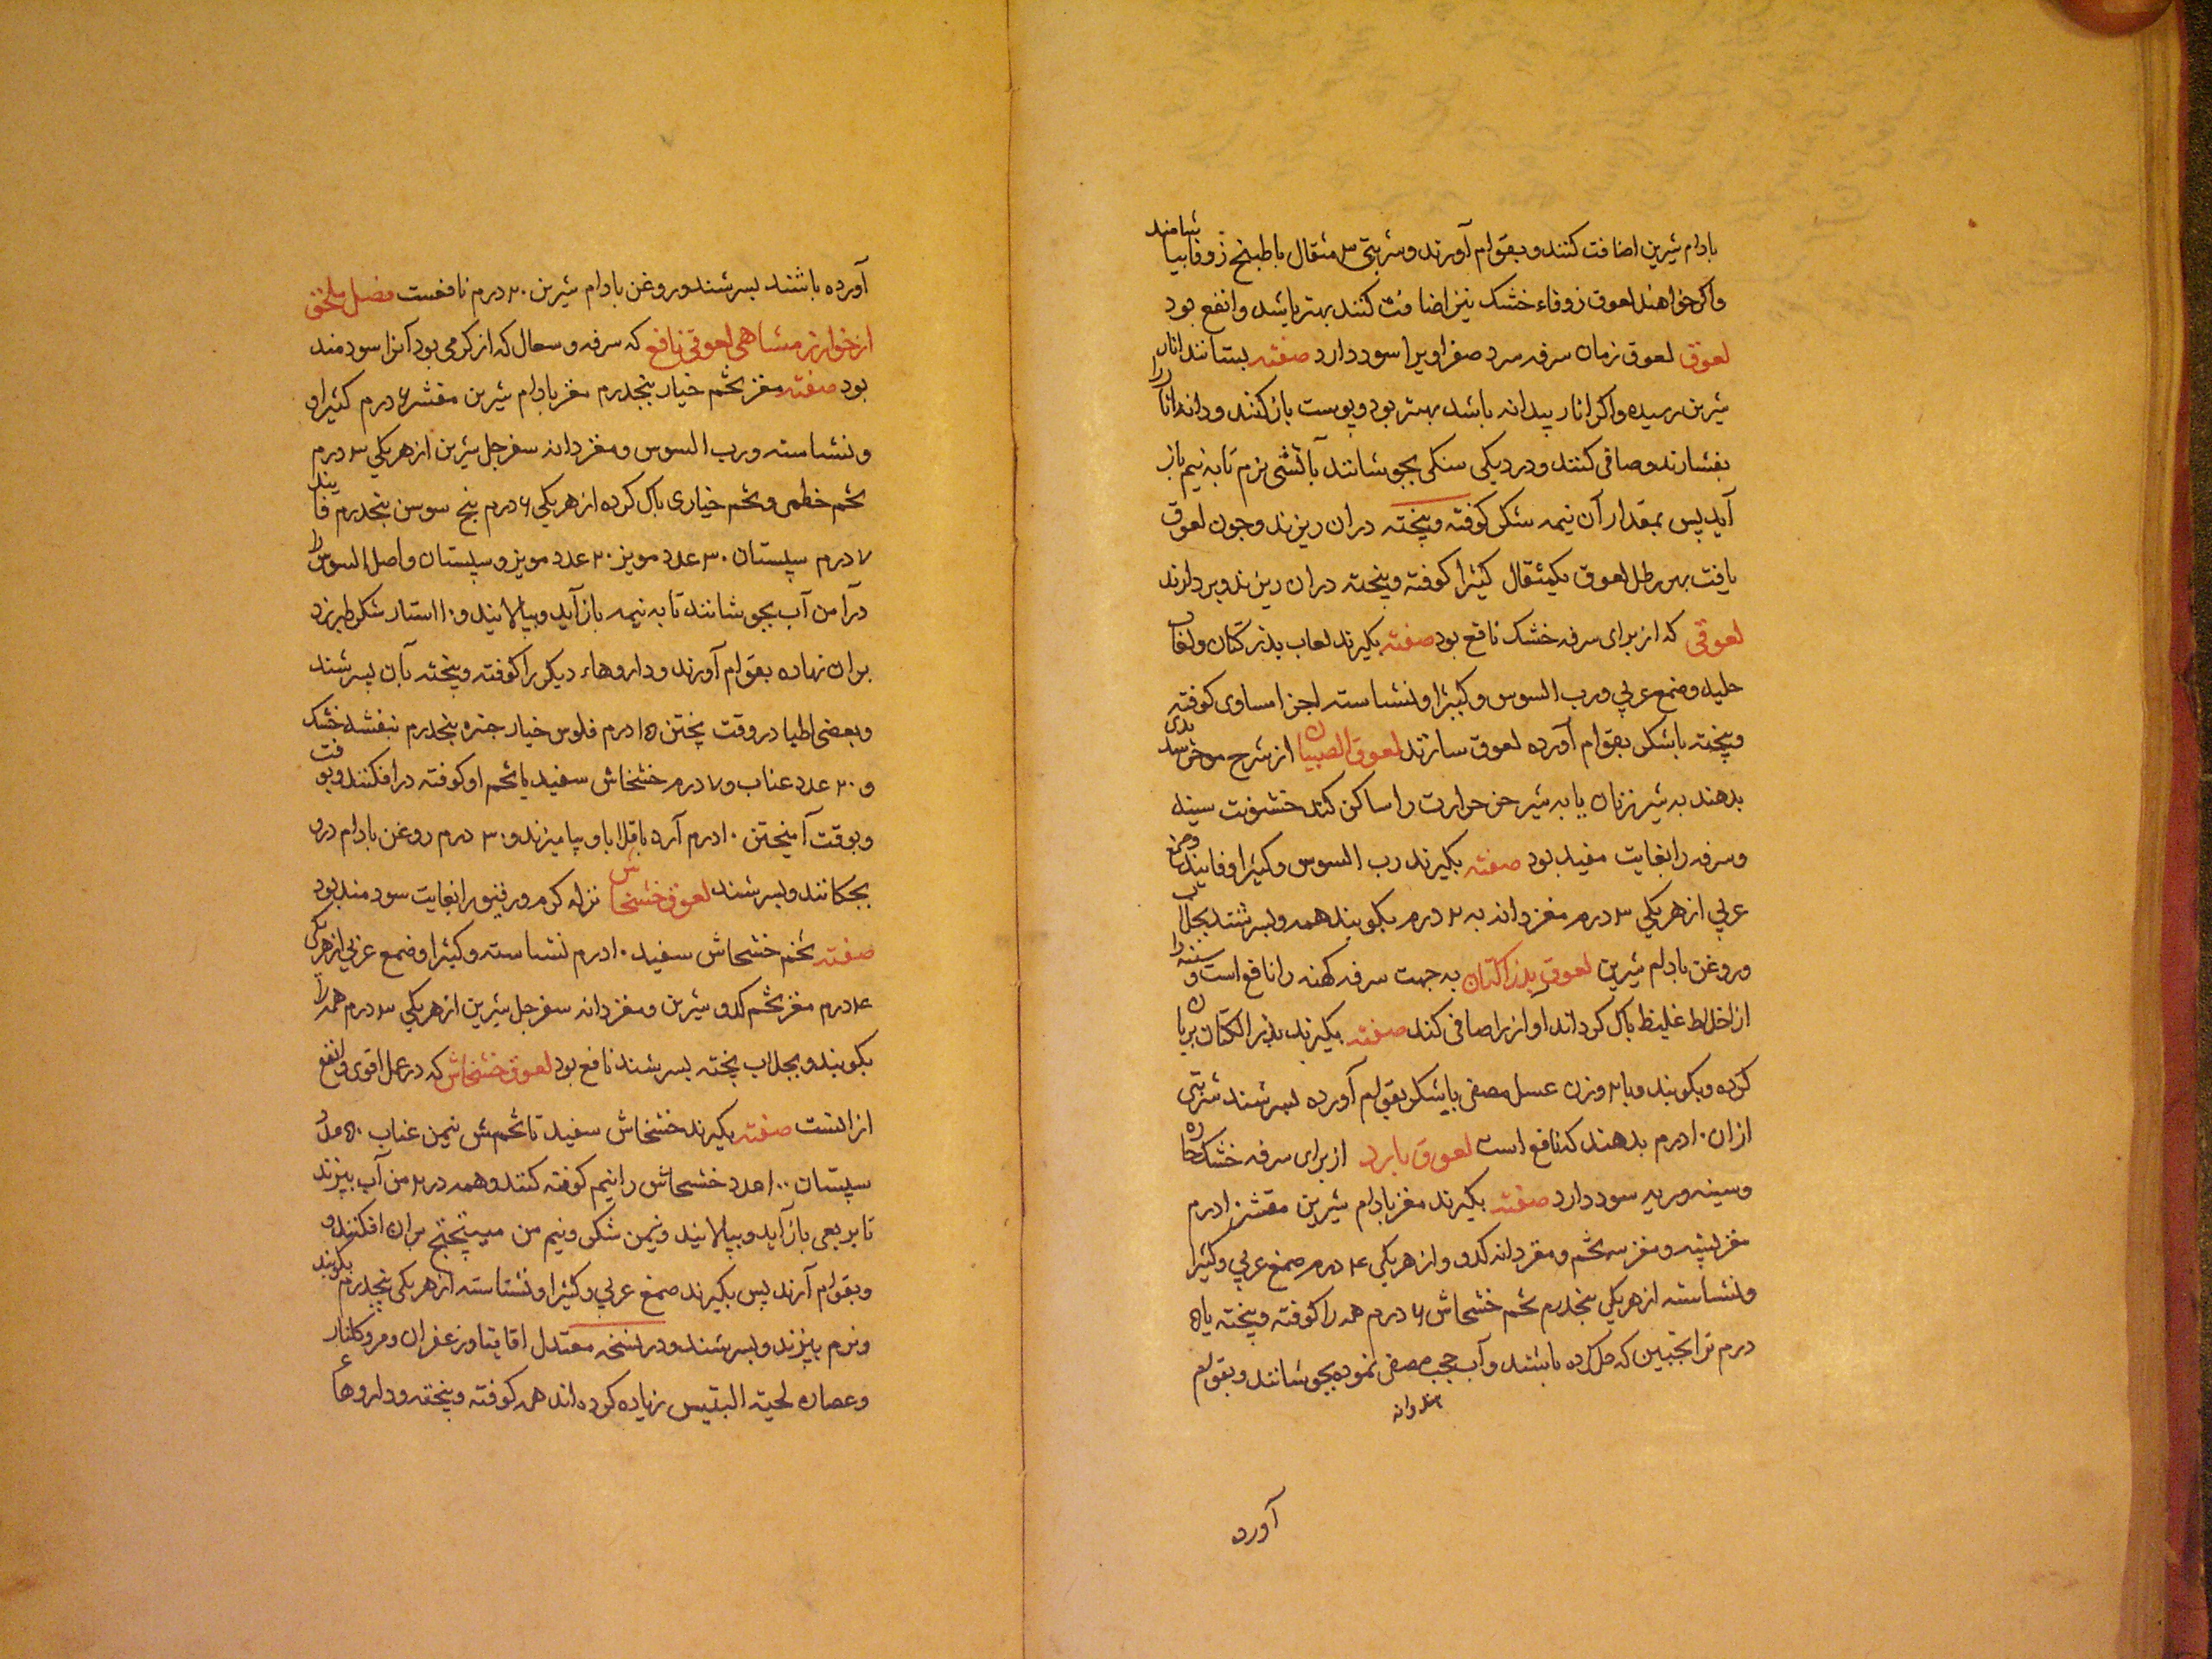 بادام شیرین اضافت کنند و بقوام آورند و شربتی ۳ مثقال با طبیخ زوفا بیاشامند
و اکر خواهند لعوق زوفاء خشک نیز اضافت کنند بهتر باشد و انفع بود
لعوق لعوق زمان سرفه سرد صفراویرا سود دارد صفته بستانند انار
شیرین رسیده و اکر انار بیدانه باشد بهتر بود و پوست بازکنند و دانه انار را
بفشارند و صافی کنند و در دیکی سنکی بجوشانند بآتشی نرم تا به نیم باز
آید پس بمقدار آن نیمه شکر کوفته و بیخته دران ریزند و چون لعوق
یافت بهر رطل لعوق یکمثقال کثیرا کوفته و بیخته دران ریزند و بردارند
لعوقی که از برای سرفه خشک نافع بود صفته بکیرند لعاب بذر کتان و لعاب
حلبه و صمغ عربی و رب السوس و کثیرا و نشاسته اجزا مساوی کوفته
و بیخته با شکر بقوام آورده لعوق سازند لعوق الصبیان از شرح
بدهند به شیر زنان یا به شیر خر حرارت را ساکن کند خشونت سینه
و سرفه را بغایت مفید بود صفته بکیرند رب السوس و کثیرا و فانید و صمغ
عربی از هر یکی ۳ درم مغز دانه به ۲ درم بکوبند همه و بسرشند بجلاب
و روغن بادام شیرین لعوق بذر الکتان به جهت سرفه کهنه را نافع است و سینه را
از اخلاط غلیظ پاک کرداند آواز را صافی کند صفته بکیرند بذر الکتان بریان
کرده و بکوبند و با ۲ وزن عسل مصفی یا شکر بقوام آورده بسرشند شربتی
ازان ۱۰ درم بدهند که نافع است لعوق بارد از برای سرفه خشک حاره
و سینه و ریه سود دارد صفته بکیرند مغز بادام شیرین مقشر ۱۰ درم
مغز پسته و مغز تخم و مغز دانه کدو و از هر یکی ۴ درم صمغ عربی و کثیرا
و نشاسته از هر یکی پنجدرم تخم خشخاش ۶ درم همه را کوفته و بیخته با ۵
درم ترانجبین که حل کرده باشند و آب مصفی نموده بجوشانند و بقوام
هندوانه
آورده
آورده باشند بسرشند و روغن بادام شیرین ۲۰ درم نافعست فصل ملحق
از خوارزمشاهی لعوقی نافع که سرفه و سعال که از کرمی بود آنرا سودمند
بود صفته مغز تخم خیار پنجدرم مغز بادام شیرین مقشر ۶ درم کثیرا و
و نشاسته و رب السوس و مغز دانه سفرجل شیرین از هر یکی ۳ درم
تخم خطمی و تخم خیاری پاک کرده از هر یکی ۶ درم بیخ سوسن پنجدرم فانید
۷ درم سپستان ۳۰ عدد مویز ۲۰ عدد مویز و سپستان و اصل السوس را
در آمن آب بجوشانند تا به نیمه باز آید و بپالانید و ۱۰ استار شکر طبرزد
بران نهاده بقوام آورند و داروهاء دیکر را کوفته و بیخته بآن بسرشند
و بعضی اطبا در وقت پختن ۱۵ درم فلوس خیار چنبره پنجدرم بنفشه خشک
و ۲۰ عدد عناب و ۷ درم خشخاش سفید یا تخم او کوفته درافکنند و بوقت
و بوقت آمیختن ۱۰ درم آرد باقلا باو بیامیزند و ۳۰ درم روغن بادام درو
بچکانند و بسرشند لعوق خشخاش نزله کرم و رقیق را بغایت سودمند بود
صفته تخم خشخاش سفید ۱۰ درم نشاسته و کثیرا و صمغ عربی از هر یکی
۴ درم مغز تخم کدو شیرین و مغز دانه سفرجل شیرین از هر یکی ۳ درم همه را
بکوبند و بجلاب پخته بسرشند نافع بود لعوق خشخاش که در عمل اقوی و انفع
ازانست صفته بکیرند خشخاش سفید تا تخمش نیمن عناب ۵۰ عدد
سپستان ۱۰۰ عدد خشخاش را نیم کوفته کنند و همه در ۲ من آب بپزند
تا بربعی باز آید و بپالانید و نیمن شکر و نیم من میپختج بران افکنند و
و بقوام آرند پس بکیرند صمغ عربی و کثیرا و نشاسته از هر یکی پنجدرم بکوبند
و نرم بپزند و بسرشند و در نسخه معتدل اقاقیا و زعفران و مر و کلنار
و عصاره لحیة التیس زیاده کرده اند همه کوفته و بیخته و داروهاء